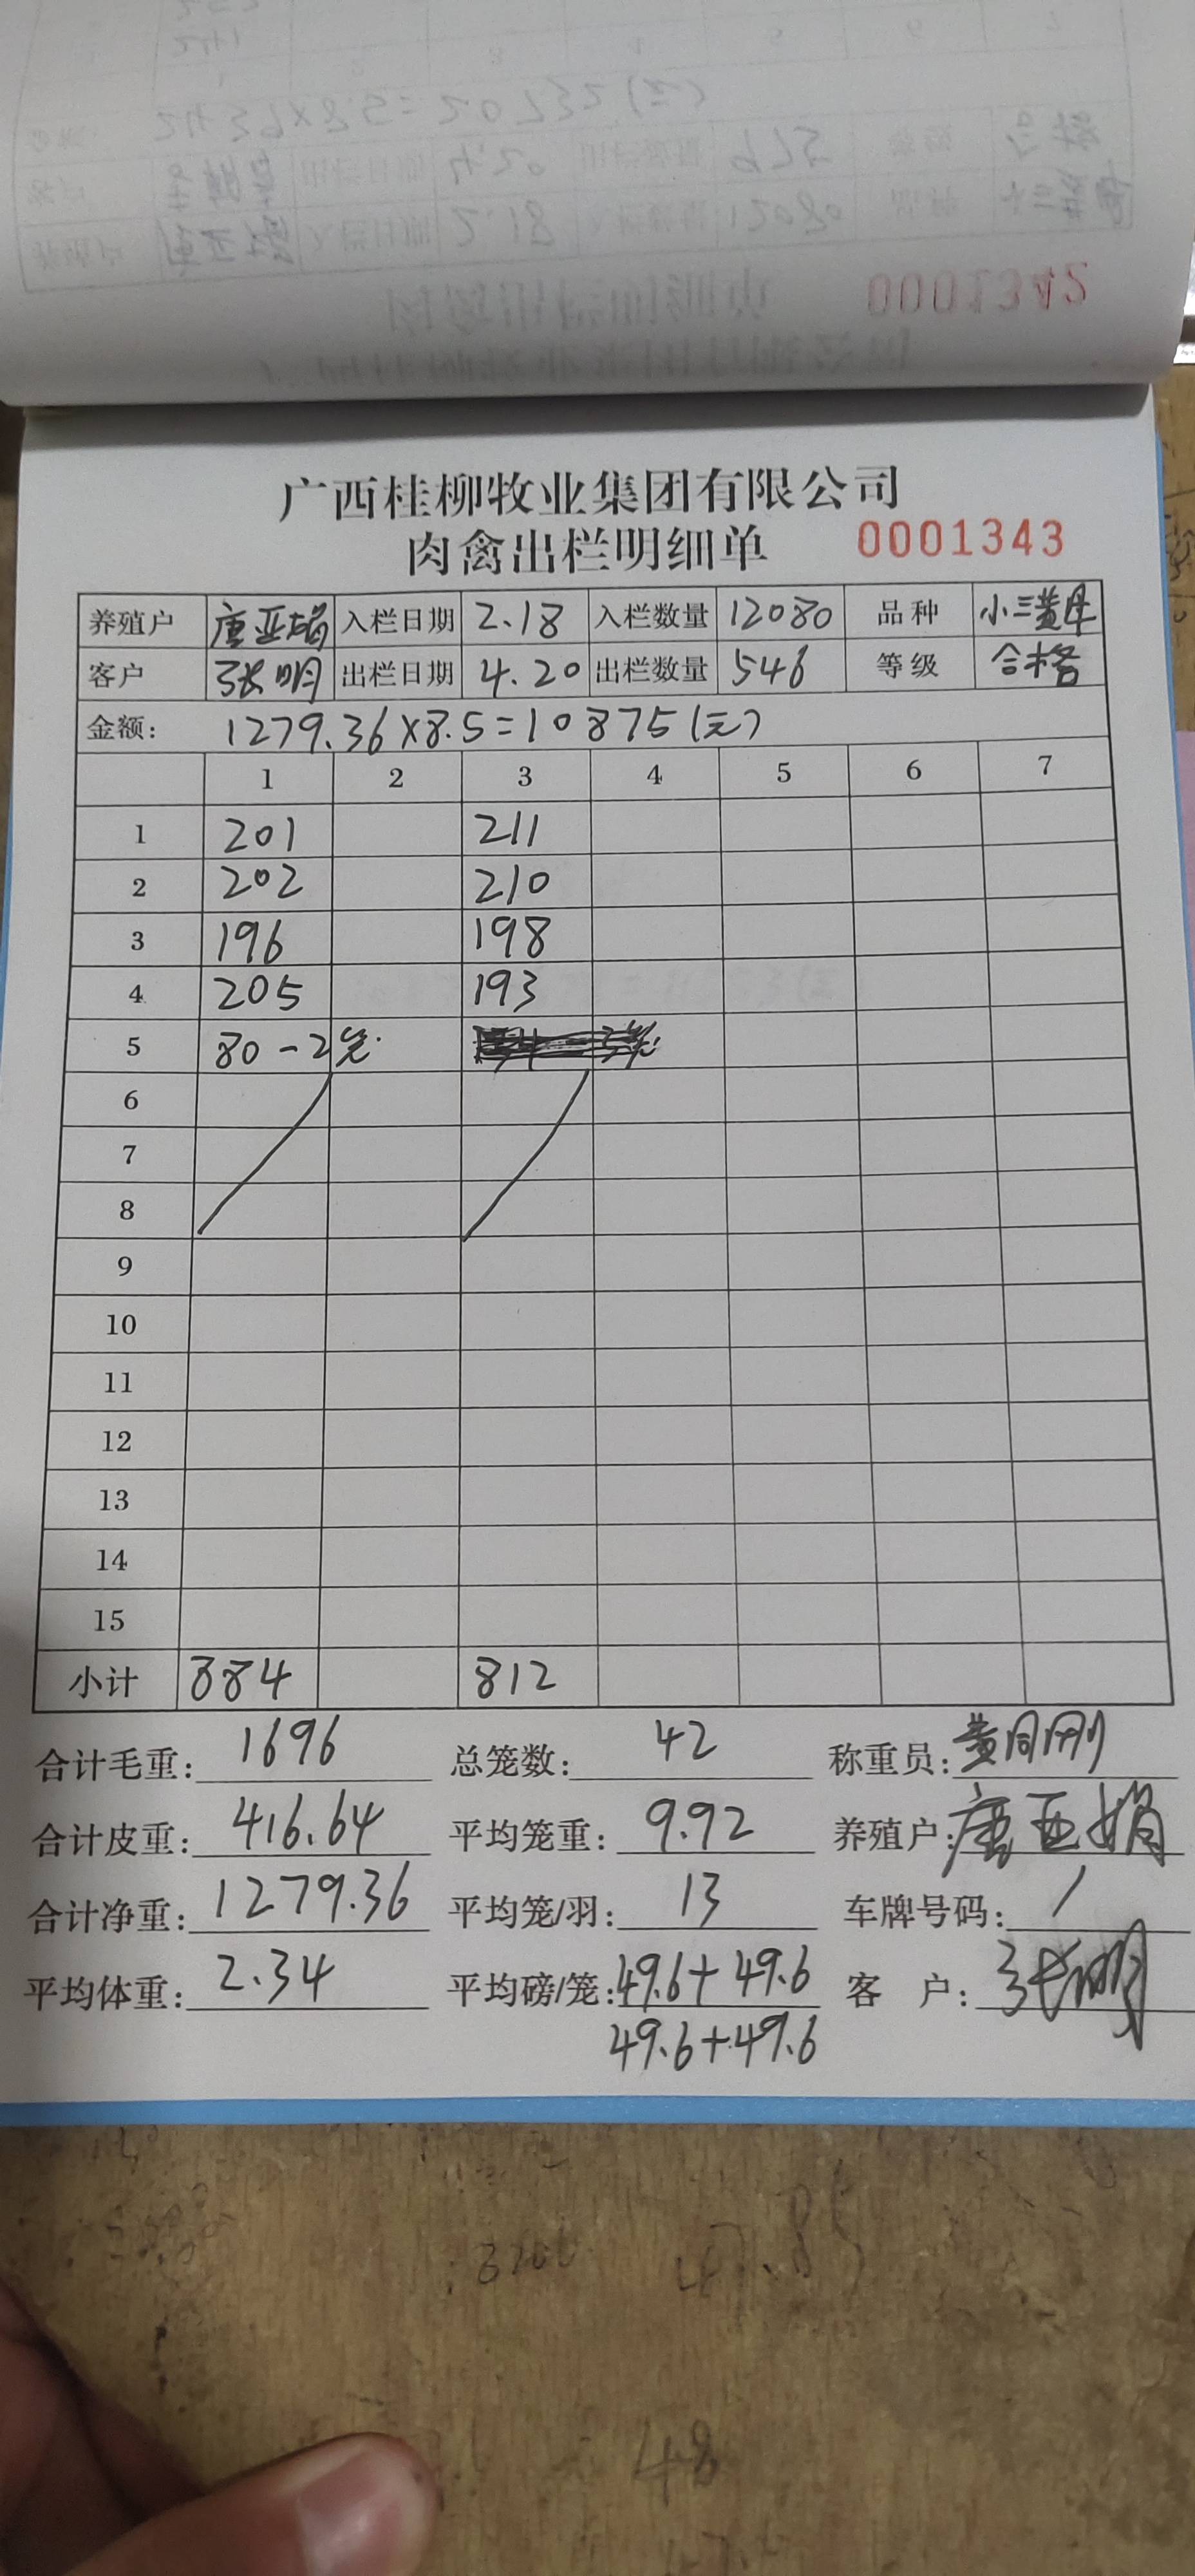 0001342
广西桂柳牧业集团有限公司
肉禽出栏明细单 0001343
养殖户 唐亚娟 入栏日期 2.18 入栏数量 12080 品种 小三黄母
客户 张明 出栏日期 4.20 出栏数量 546 等级 合格
金额: 1279.36×8.5=10875(元)
1 2 3 4 5 6 7
1 201 211
2 202 210
3 196 198
4 205 193
5 80-2笼.
6
7
8
9
10
11
12
13
14
15
小计 884 812
合计毛重: 1696 总笼数: 42 称重员: 黄同刚
合计皮重: 416.64 平均笼重: 9.92 养殖户: 唐亚娟
合计净重: 1279.36 平均笼/羽: 13 车牌号码: /
平均体重: 2.34 平均磅/笼: 49.6+49.6 客户: 张明
49.6+49.6
48